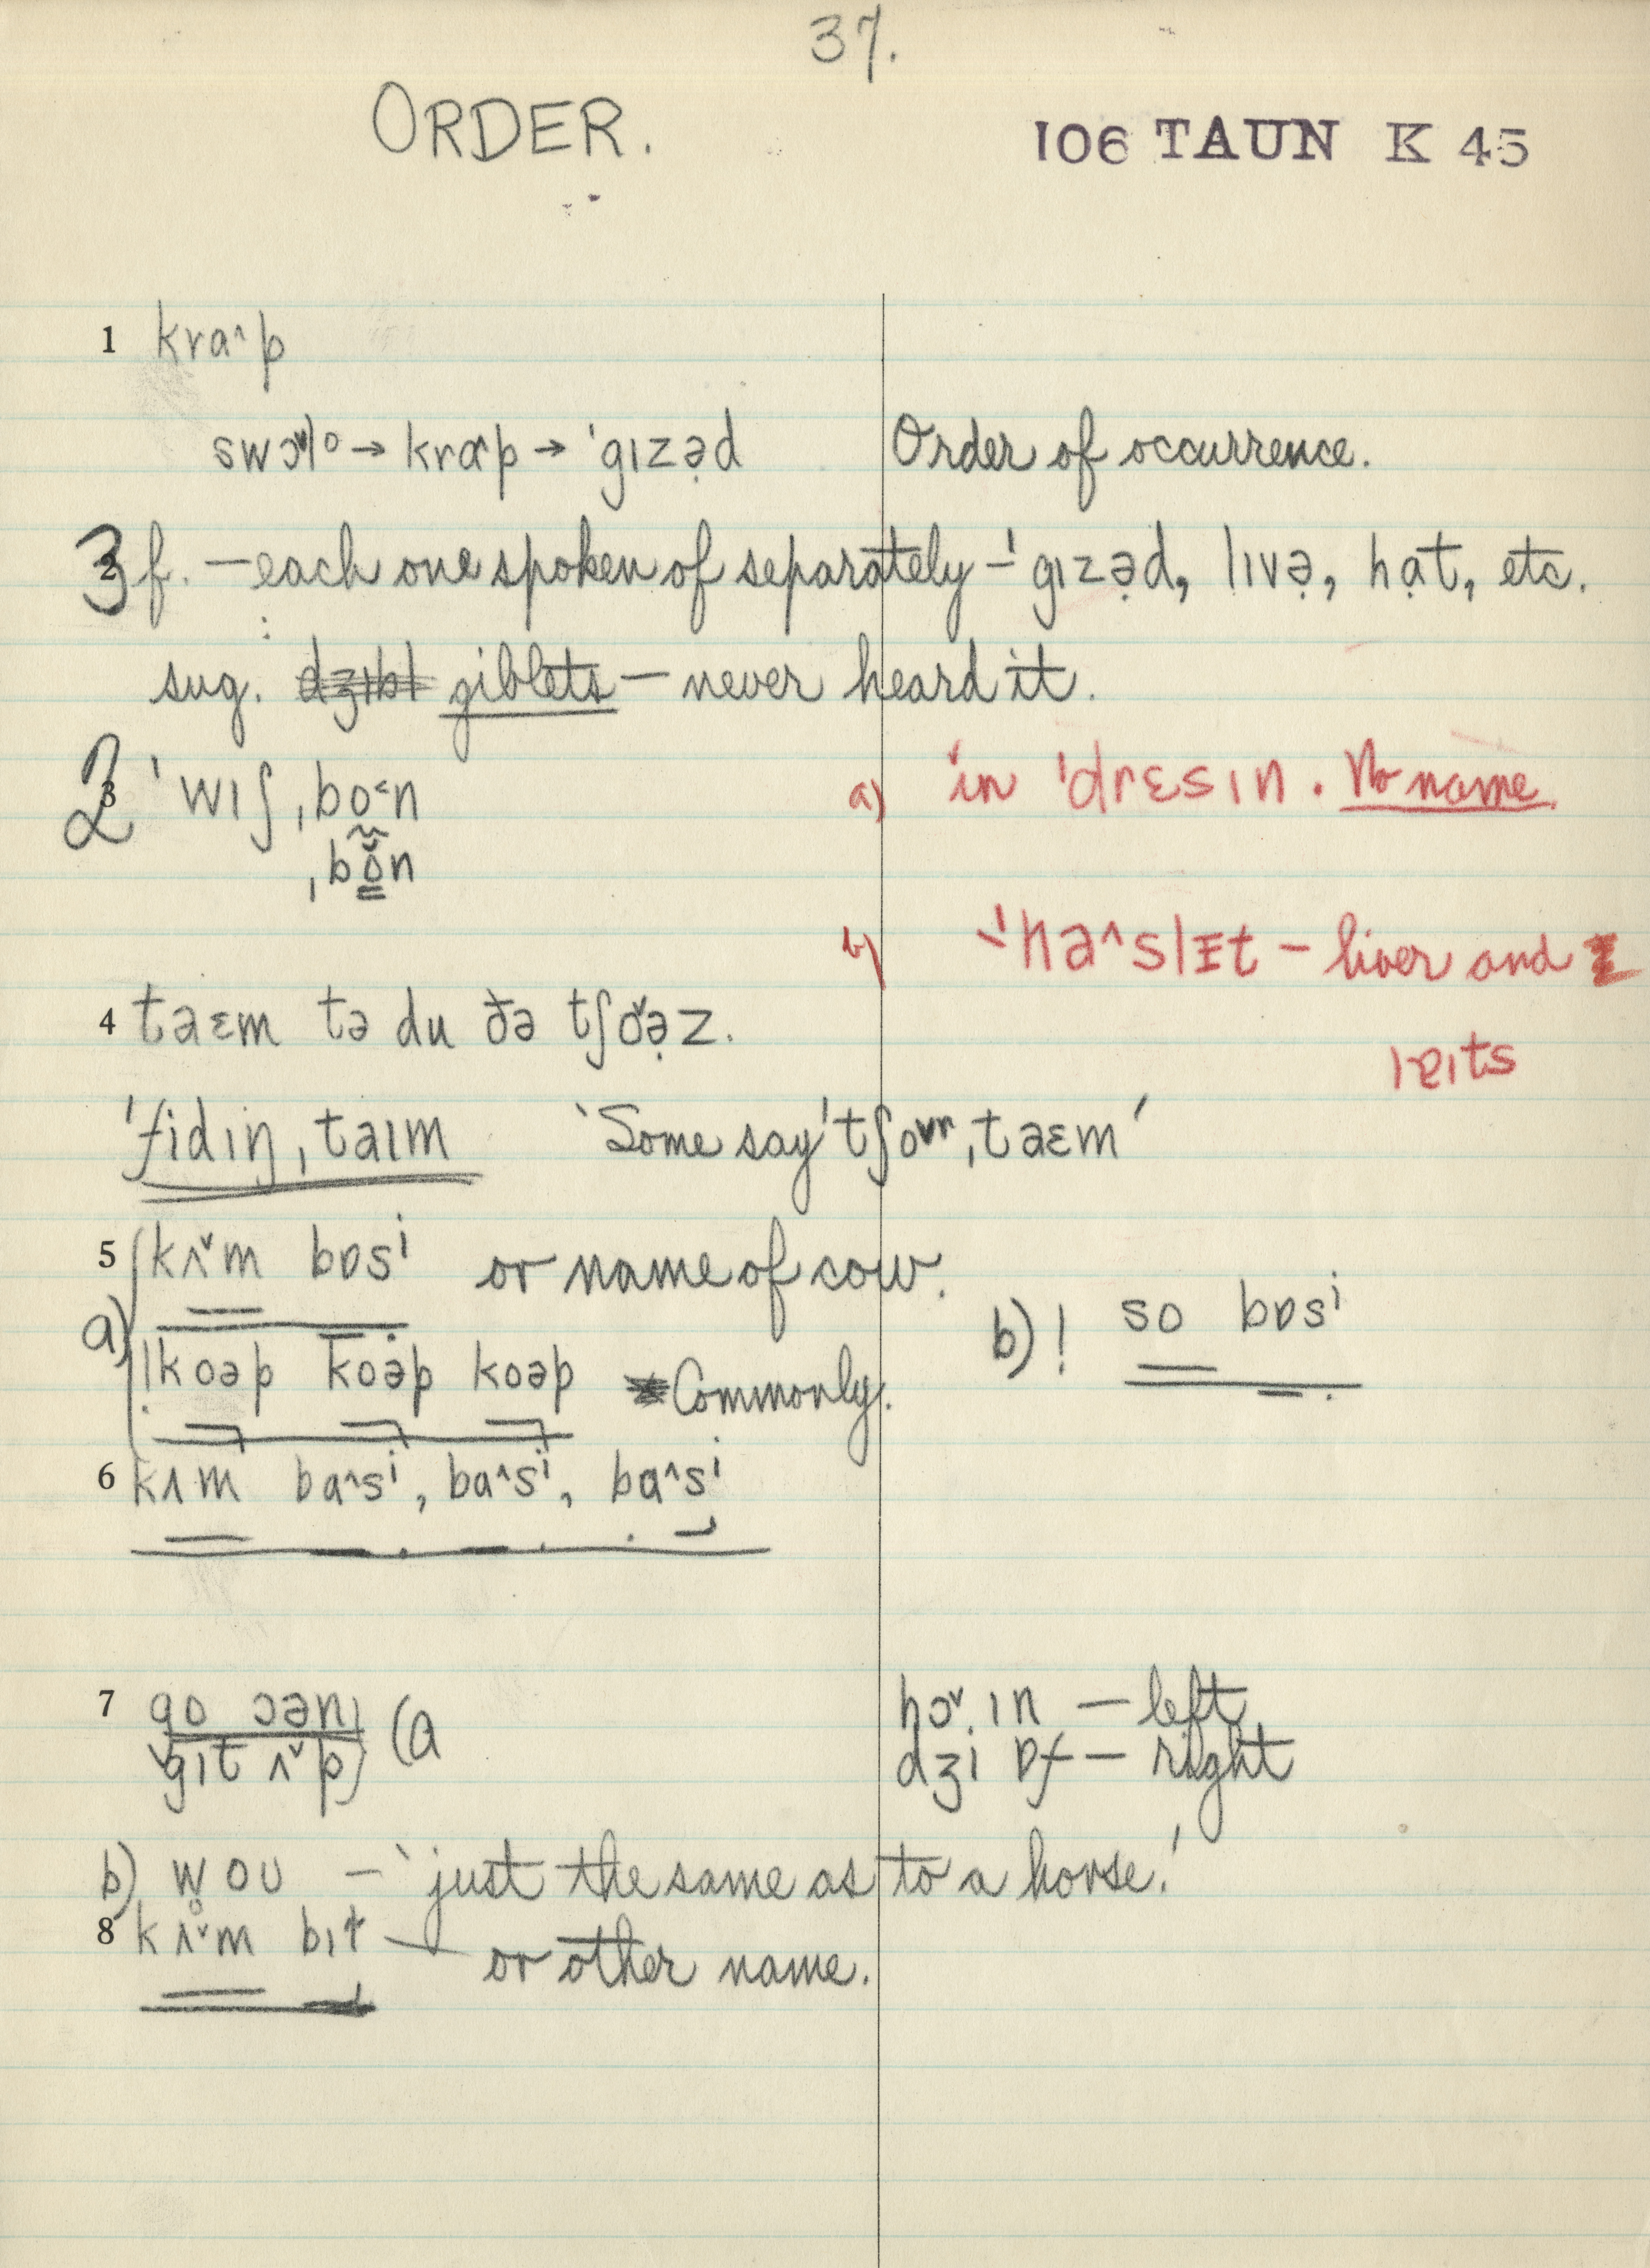 37.
ORDER.
106 TAUN K 45
1 kraˆp
→ kraˆp → ˈgɪzə̣d Order of occurrence.
3 f. — each one spoken of separately – ˈgɪzə̣d, lɪvə̣, hạt, etc.
sug. giblets — never heard it.
2 ˈwɪʃ ˌbo˂n a) in ˈdrɛsɪn. No name.
ˌbŏn
b) ˈhaˆslɪt – liver and
4 taɛm tə du ðə tʃɔˇə̣z. lɐɪts
ˈfidɪŋ ˌtaɪm ‘Some say ˈtʃoʊr ˌtaɛm’
5 kʌˇm bɒsi or name of cow.
a) b) ! so bɒsi
! koəp koəp koəp Commonly.
6 kʌm baˆsi, baˆsi, baˆsi
7 go ɔən (a hɔˇ ɪn — left
gɪt ʌˇp dʒi ɒf — right
b) w̥oʊ — ‘just the same as to a horse.’
8 kʌˇm bɪt — or other name.